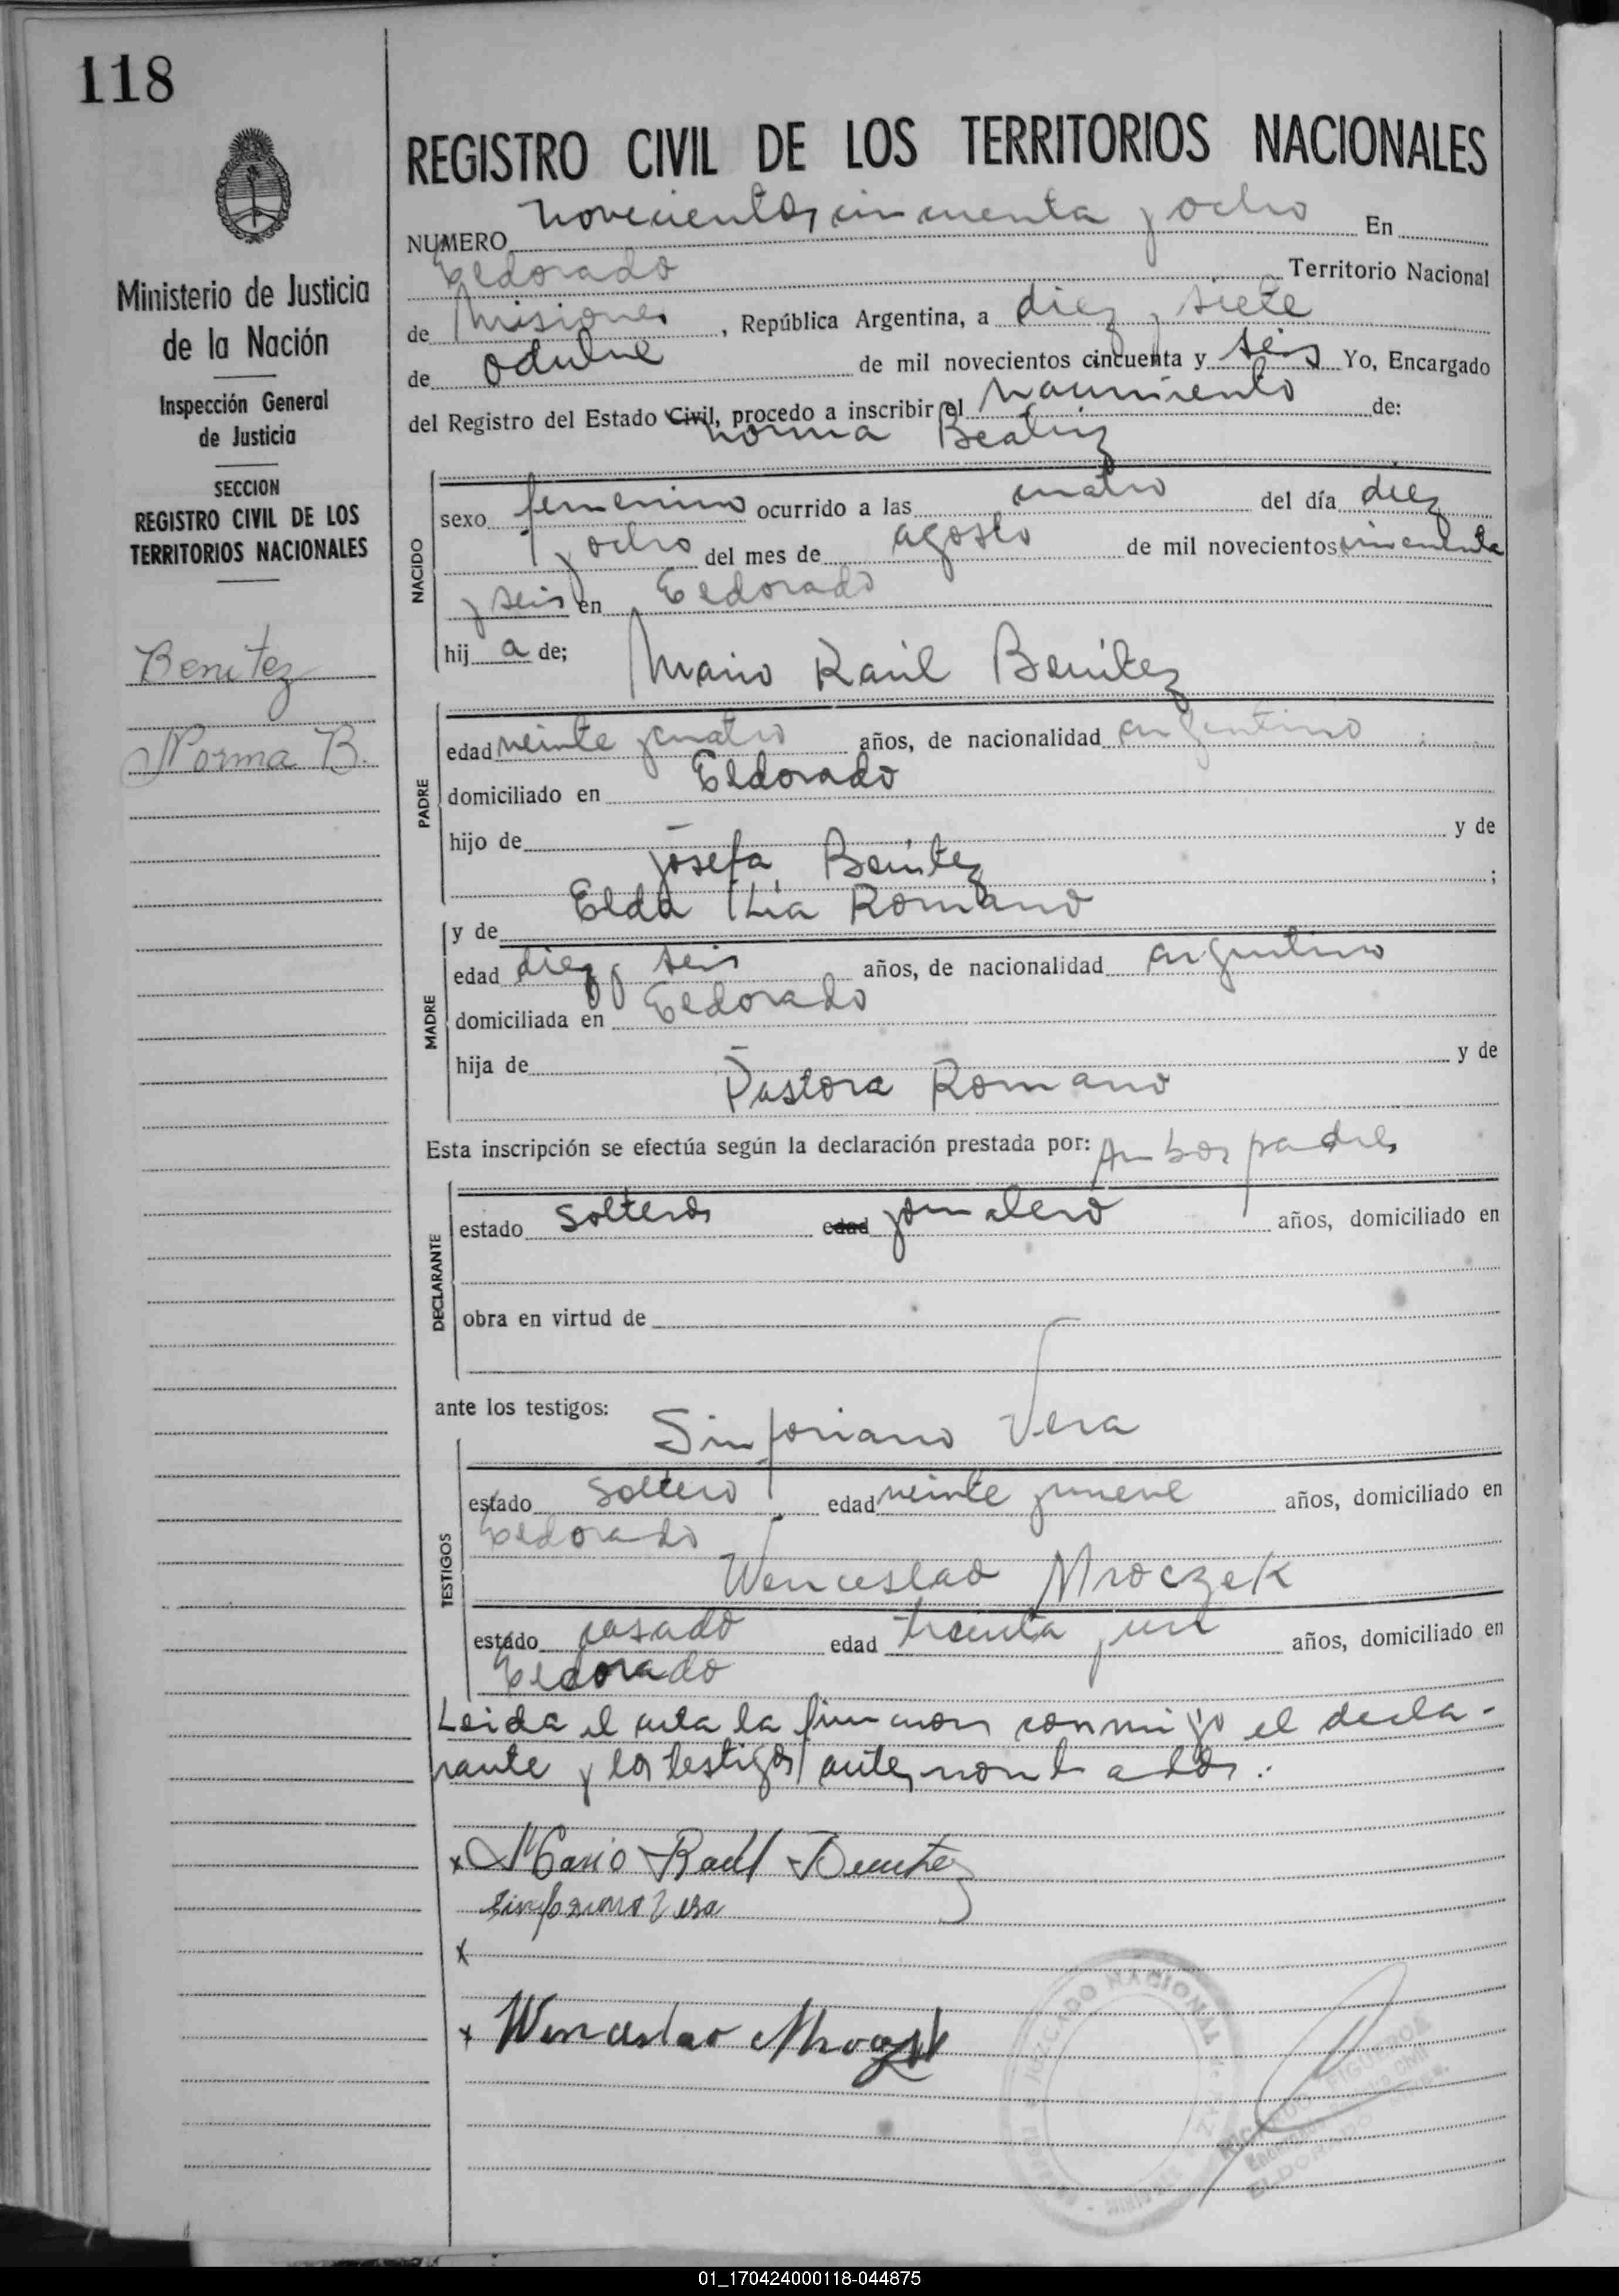 118
REGISTRO CIVIL DE LOS TERRITORIOS NACIONALES
NUMERO novecientos cincuenta y ocho En
Eldorado Territorio Nacional
de Misiones, República Argentina, a diez y siete
de octubre de mil novecientos cincuenta y seis Yo, Encargado
del Registro del Estado Civil, procedo a inscribir el nacimiento de:
Norma Beatriz
Ministerio de Justicia
de la Nación
Inspección General
de Justicia
SECCION
REGISTRO CIVIL DE LOS
TERRITORIOS NACIONALES
Benitez
Norma B.
NACIDO
sexo femenino ocurrido a las cuatro del día diez
y ocho del mes de agosto de mil novecientos cincuenta
y seis en Eldorado
hij a de; Mario Raúl Benítez
PADRE
edad veinte y cuatro años, de nacionalidad argentino
domiciliado en Eldorado
hijo de - y de
Josefa Benítez ;
y de Elda Ilia Romano
MADRE
edad diez y seis años, de nacionalidad argentino
domiciliada en Eldorado
hija de - y de
Pastora Romano
Esta inscripción se efectúa según la declaración prestada por: Ambos padres
DECLARANTE
estado solteros edad jornalero años, domiciliado en
obra en virtud de
ante los testigos: Sinforiano Vera
TESTIGOS
estado soltero edad veinte y nueve años, domiciliado en
Eldorado
Wenceslao Mroczek
estado casado edad treinta y un años, domiciliado en
Eldorado
Leida el acta la firmaron conmigo el decla-
rante y los testigos antes nombrados.
x Mario Raul Benitez
Sinforiano Vera
x
x Wenceslao Mroczek
JUZGADO NACIONAL
RICARDO FIGUEROA
ELDORADO
01_170424000118-044875